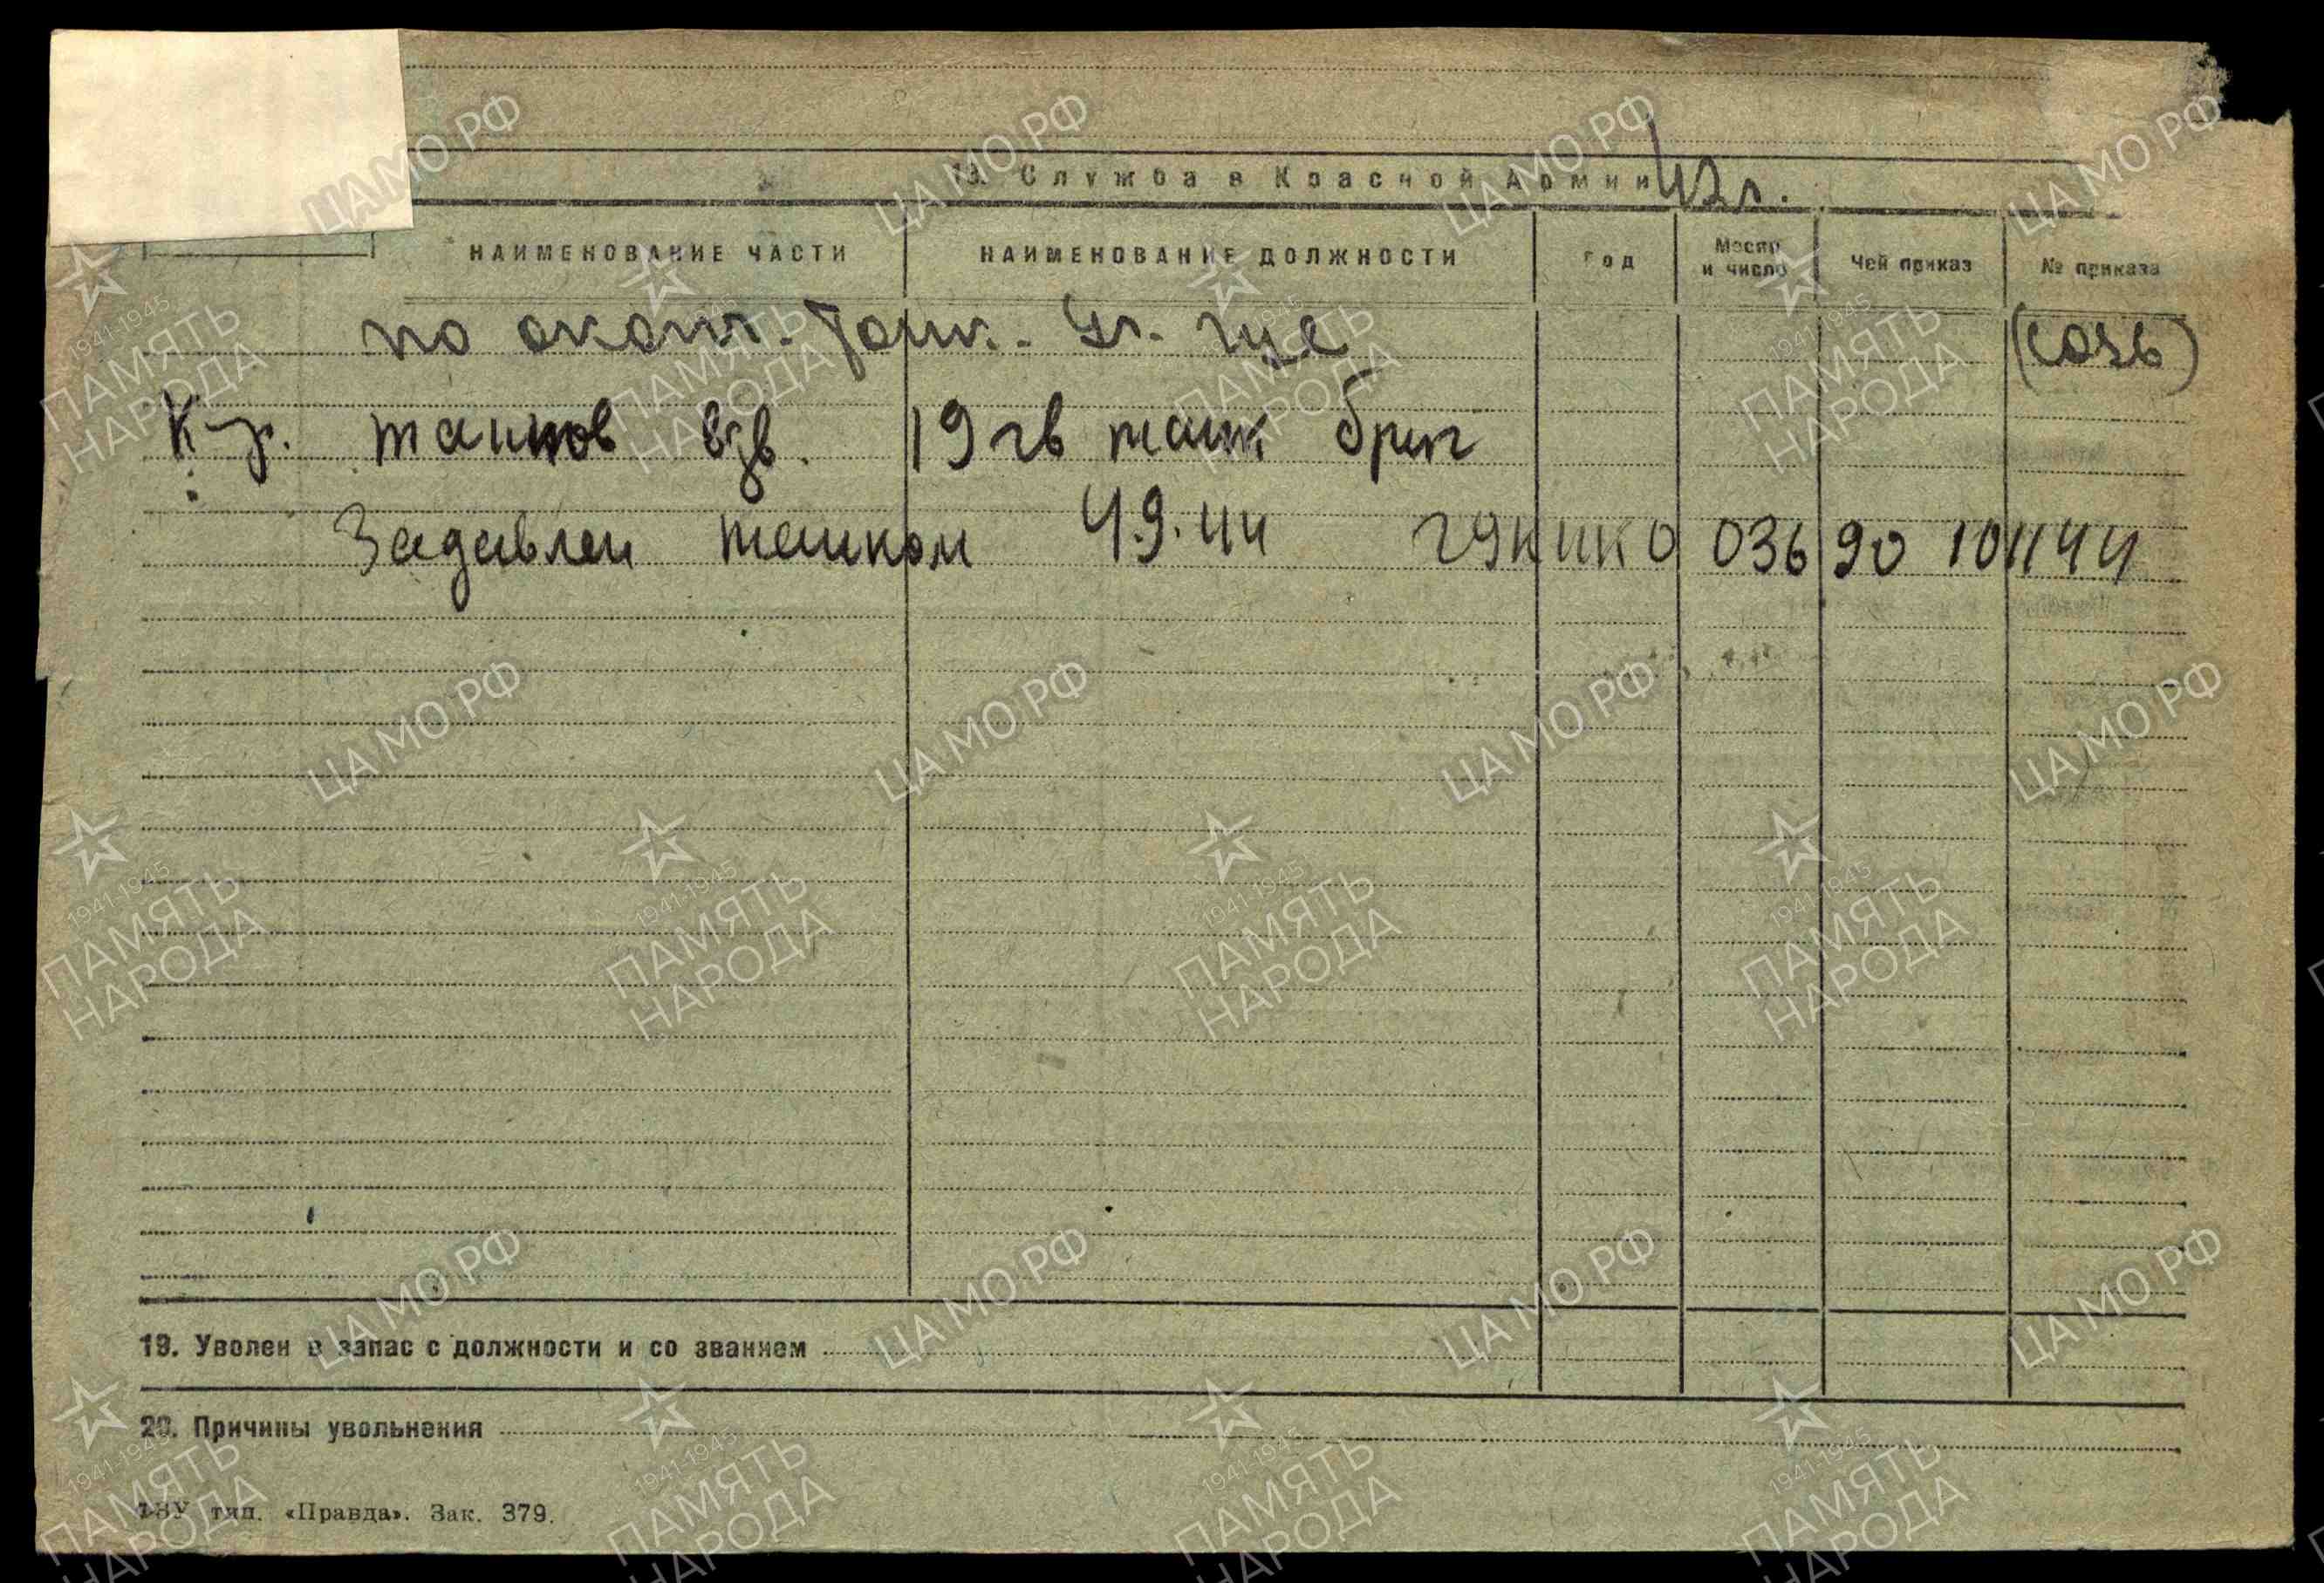 18. Служба в Красной Армии 42г.
НАИМЕНОВАНИЕ ЧАСТИ НАИМЕНОВАНИЕ ДОЛЖНОСТИ Год Месяц и число Чей приказ № приказа
по оконч. Танк. Уч.
К-р. танков взв. 19 гв танк бриг
Задавлен танком 4.9.44 ГУК НКО 03690 10 11 44
19. Уволен в запас с должности и со званием
20. Причины увольнения
тип. «Правда». Зак. 379.
ЦАМО РФ
1941-1945
ПАМЯТЬ
НАРОДА